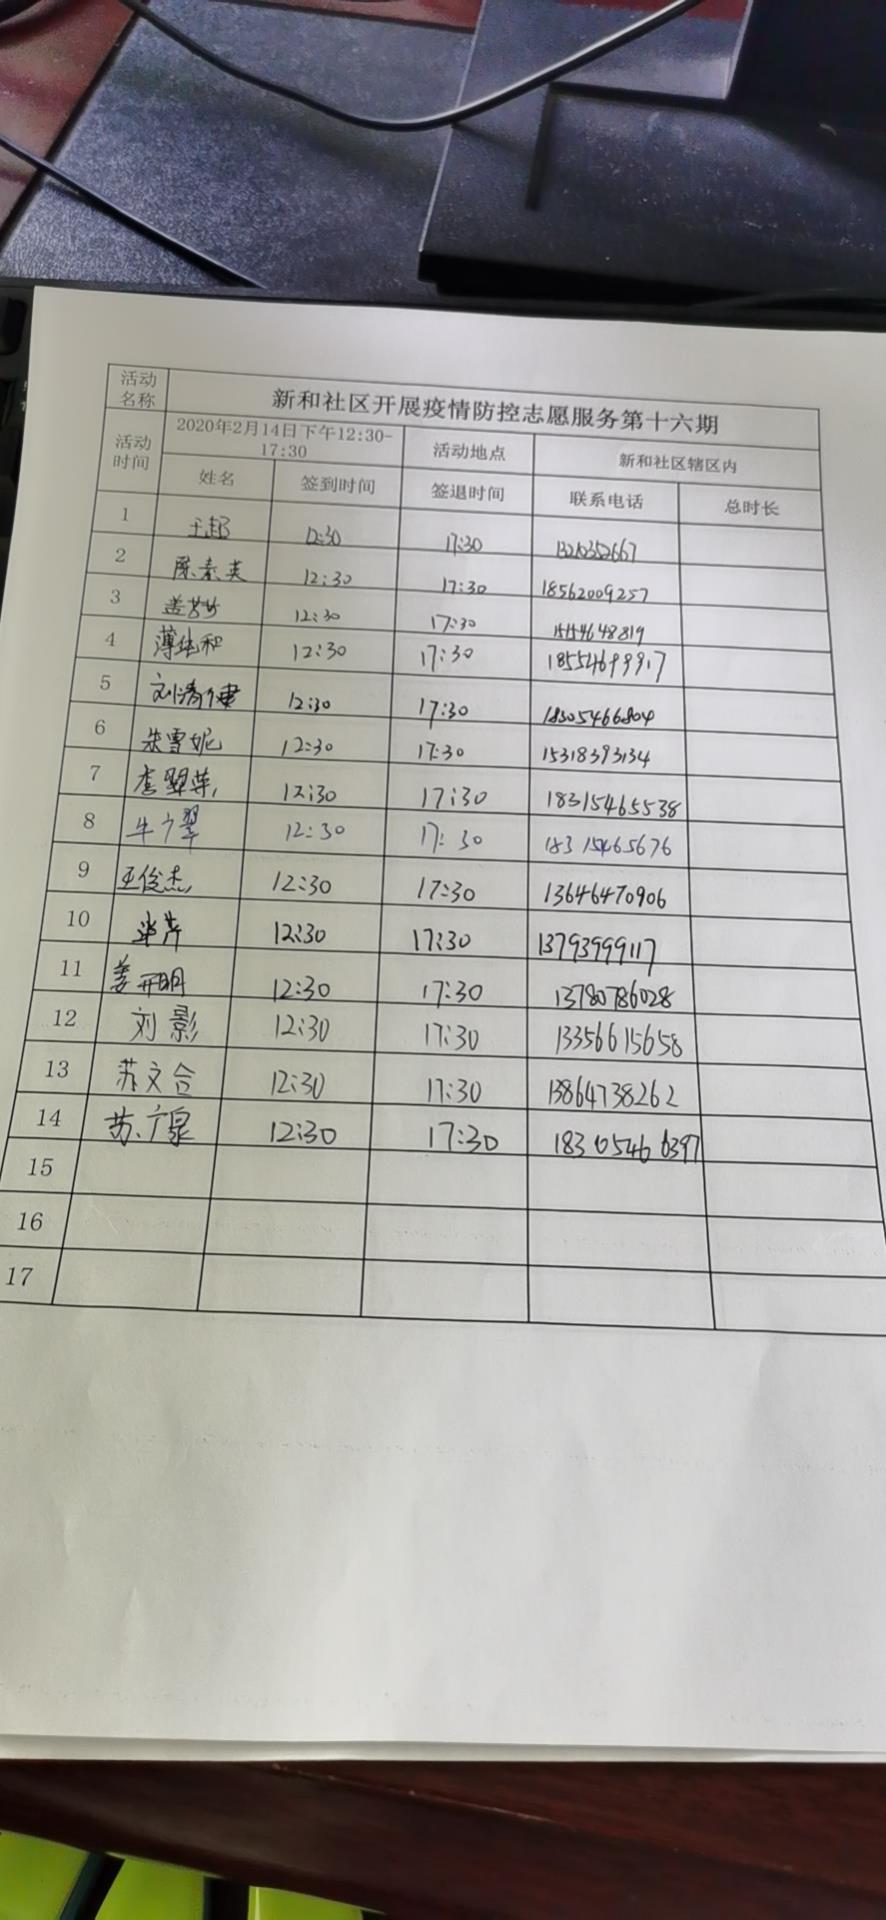 活动名称 新和社区开展疫情防控志愿服务第十六期
活动时间 2020年2月14日下午12:30-17:30 活动地点 新和社区辖区内
姓名 签到时间 签退时间 联系电话 总时长
1 12:30 17:30
2 陈素英 12:30 17:30 18562009257
3 12:30 17:30
4 12:30 17:30
5 刘清健 12:30 17:30 18305466804
6 朱雪妮 12:30 17:30 15318393134
7 李翠萍 12:30 17:30 18315465538
8 牛少翠 12:30 17:30 18315465676
9 王俊杰 12:30 17:30 13646470906
10 12:30 17:30 13793999117
11 姜开明 12:30 17:30 13780786028
12 刘影 12:30 17:30 13356615658
13 苏文合 12:30 17:30 13864738262
14 苏广泉 12:30 17:30
15
16
17